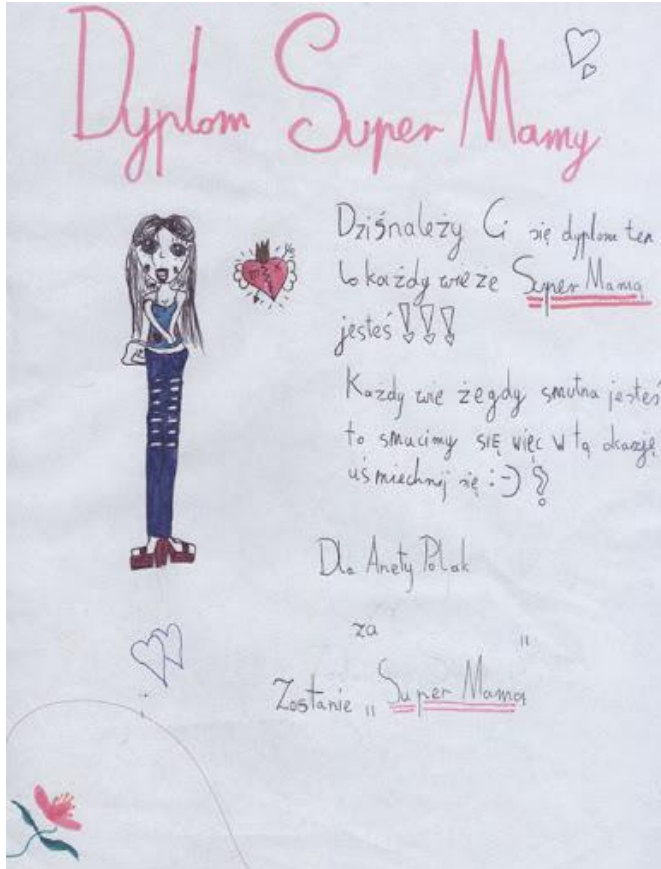 Dyplom Super Mamy
Dziśnależy Ci się dyplom ten
bo każdy wie że Super Mamą
jesteś !!!
Każdy wie żegdy smutna jesteś
to smucimy SIĘ więc w tą okazję
uśmiechnij się :-) !
Dla Anety Polak
za
Zostanie „Super Mamą"